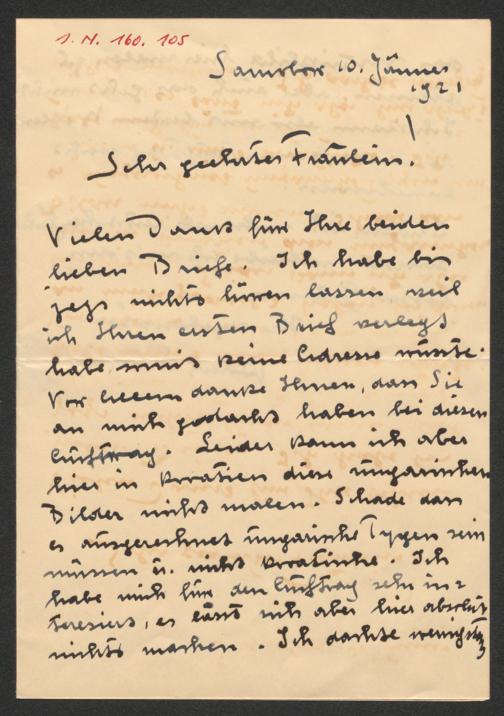 I. N. 160.105
Samobor 10. Jänner
1921
Sehr geehrtes Fräulein!
Vielen Dank für Ihre beiden
lieben Briefe. Ich habe bis
jezt nichts hören lassen weil
ich Ihren ersten Brief verlegt
habe, somit keine Adresse wüsste.
Vor allem danke Ihnen, dass Sie
an mich gedacht haben bei diesen
Auftrag. Leider kann ich aber
hier in Kroatien diese ungarischen
Bilder nicht malen. Schade dass
es ausgerechnet ungarische Typen sein
müssen u. nicht kroatische. Ich
habe mich für den Auftrag sehr in=
teresiert, es lässt sich aber hier absolut
nichts machen. Ich dachte wenigstens